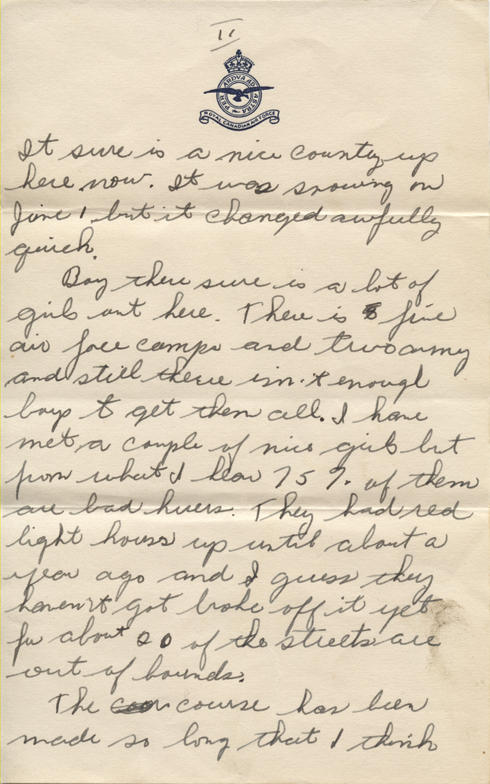 II
PER ARDUA AD ASTRA
ROYAL CANADIAN AIR FORCE
It sure is a nice county up
here now. It was snowing on
June 1 but it changed awfully
quick.
Boy there sure is a lot of
girls out here. There is five
air force camps and two army
and still there isn't enough
boys to get them all. I have
met a couple of nice girls but
from what I hear 75% of them
are bad hures. They had red
light houses up until about a
year ago and I guess they
haven't got broke off it yet
for about 20 of the streets are
out of bounds.
The course has been
made so long that I think